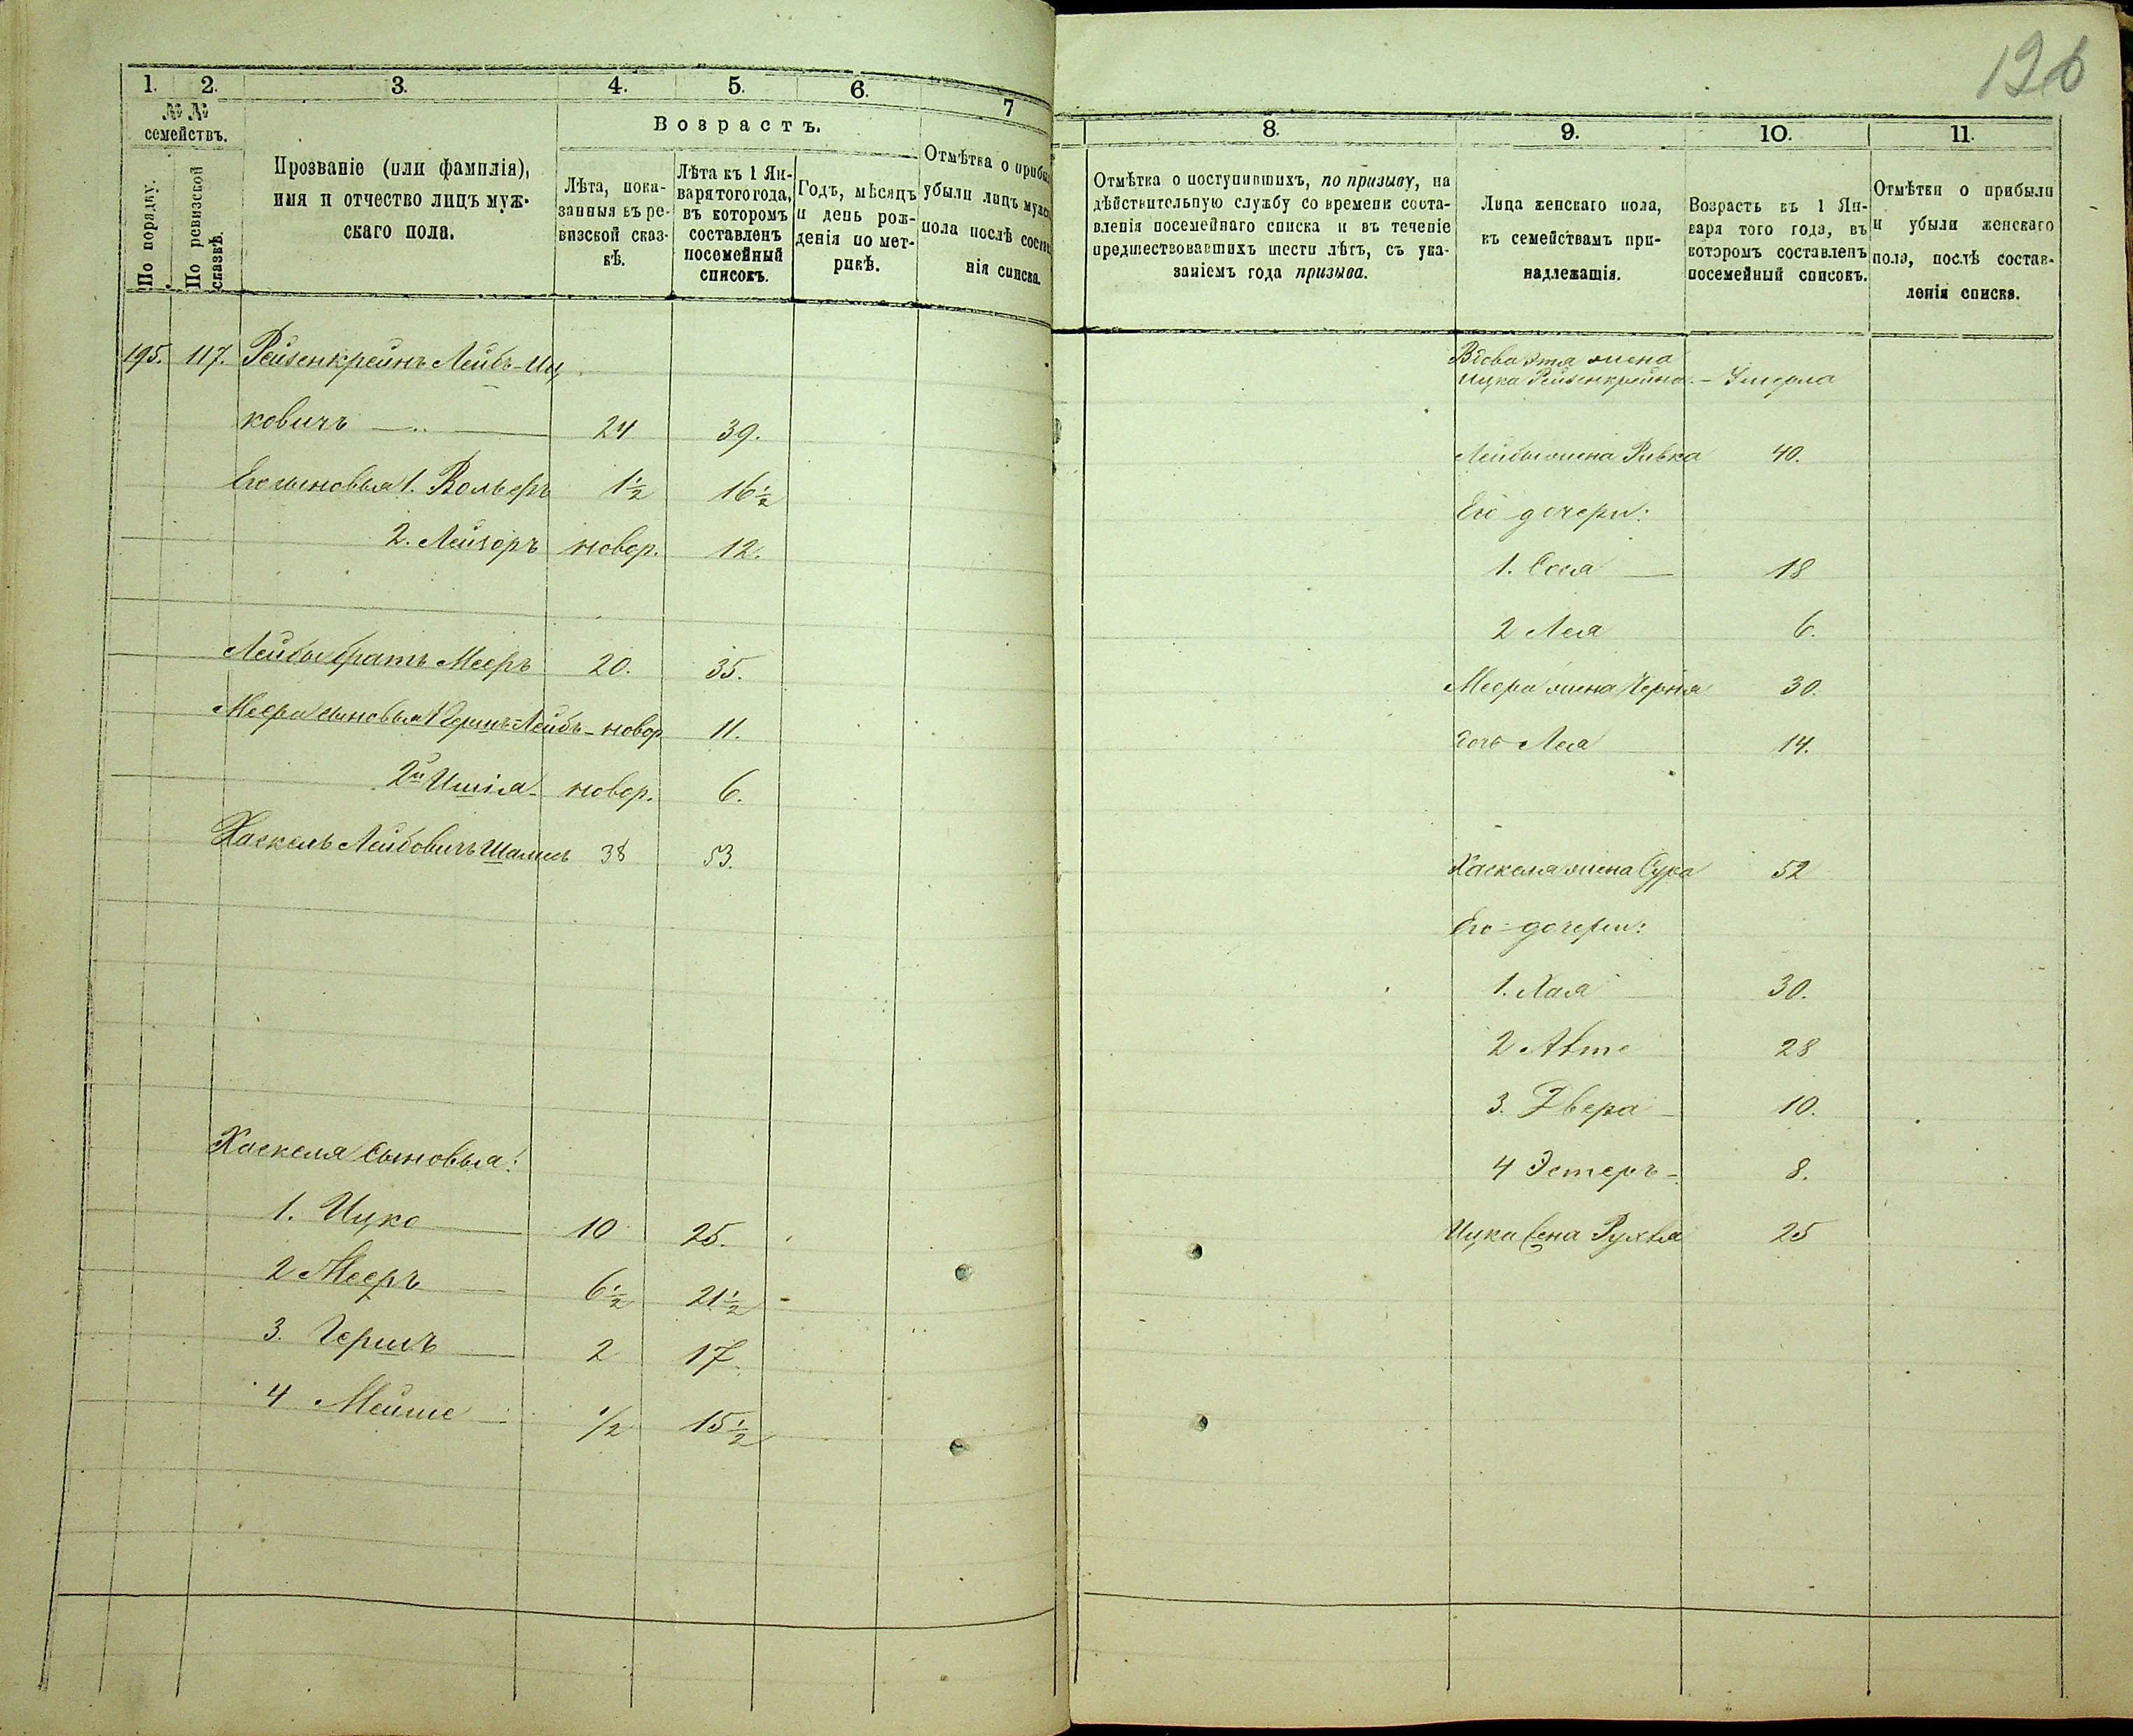 126
1. 2. 3. 4. 5. 6. 7
№ №
семействъ.
По порядку.
По ревизской
сказкѣ.
Прозваніе (или фамилія),
имя и отчество лицъ муж-
скаго пола.
Возрастъ.
Лѣта, пока-
занныя въ ре-
визской сказ-
кѣ.
Лѣта къ 1 Ян-
варя того года,
въ которомъ
составленъ
посемейный
списокъ.
Годъ, мѣсяцъ
и день рож-
денія по мет-
рикѣ.
Отмѣтка о прибы
убыли лицъ мужс
пола послѣ состав
нія списка.
195. 117. Рейзенкрейнъ Лейбъ-Иц
ковичъ 24 39.
Его сыновья 1. Вольфъ 1½ 16½
2. Лейзоръ новор. 12.
Лейбы братъ Мееръ 20. 35.
Меера сыновья 1 Гершъ Лейбъ - новор 11.
2й Ишія новор. 6.
Хаскель Лейбовичъ 38 53.
Хаскеля сыновья:
1. Ицко 10 25.
2 Мееръ 6½ 21½
3. Гершъ 2 17
4 Мейше ½ 15½
8. 9. 10. 11.
Отмѣтка о поступившихъ, по призыву, на
дѣйствительную службу со времени соста-
вленія посемейнаго списка и въ теченіе
предшествовавшихъ шести лѣтъ, съ ука-
заніемъ года призыва.
Лица женскаго пола,
къ семействамъ при-
надлежащія.
Возрастъ къ 1 Ян-
варя того года, въ
которомъ составленъ
посемейный списокъ.
Отмѣтки о прибыли
и убыли женскаго
пола, послѣ состав-
ленія списка.
Вдова Этя жена
Ицка Рейзенкрейна - Умерла
Лейбы жена Ривка 40.
Его дочери:
1. Сося 18
2 Лея 6.
Меера жена Черня 30.
дочь Лея 14.
Хаскеля жена Сура 52
Его дочери:
1. Хая 30.
2 28
3. Двера 10.
4 Эстеръ 8.
Ицка жена Рухля 25